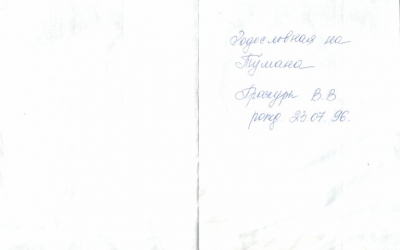 Родословная на
Тумана
Прокурн В.В
рожд. 23.07.96.